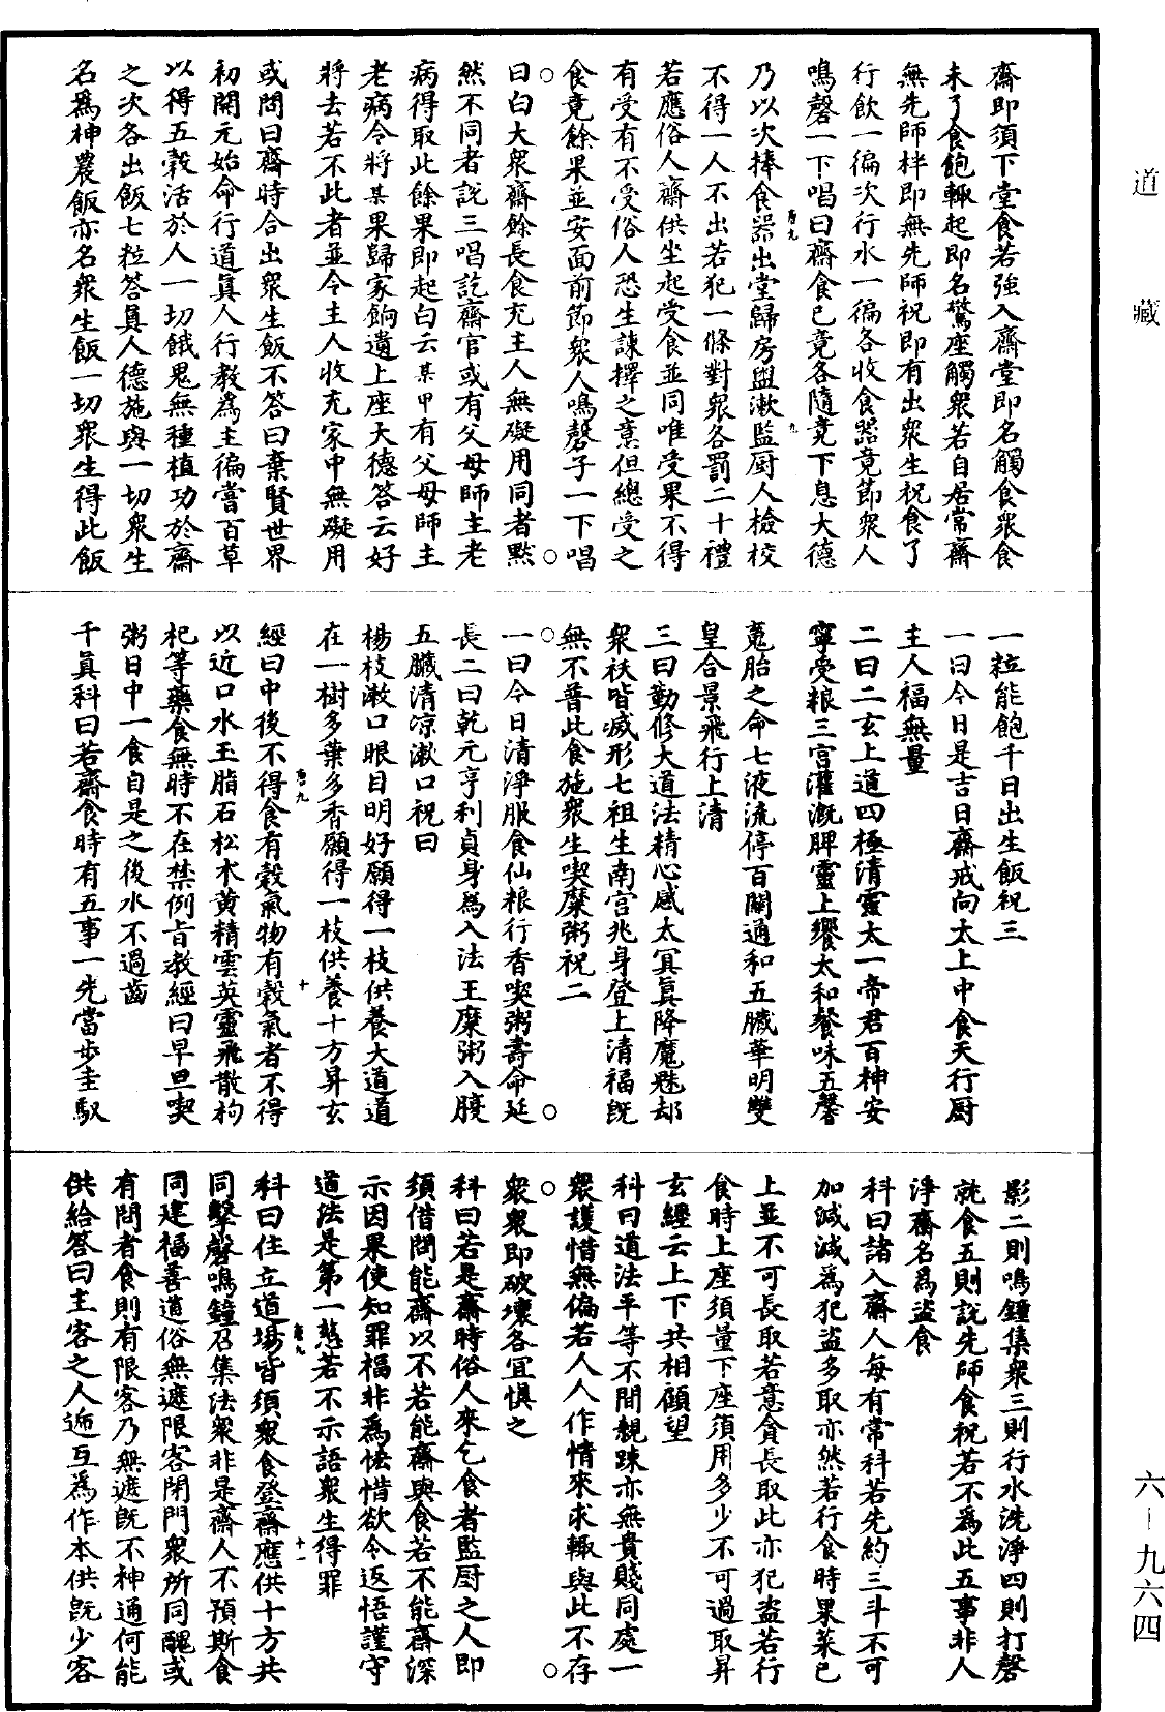 道藏
齋即須下堂食若強入齋堂即名觸食衆食
未了食飽輙起即名驚座觸衆若自居常齋
無先師柈即無先師祝即有出衆生祝食了
行飲一徧次行水一徧各收食器竟節衆人
鳴磬一下唱曰齋食已竟各隨竟下息大德
乃以次捧食器出堂歸房盥漱監厨人檢校
不得一人不出若犯一條對衆各罰二十禮
若應俗人齋供坐起受食並同唯受果不得
有受有不受俗人恐生諫擇之意但總受之
食竟餘果並安面前節衆人鳴磬子一下唱
曰白大衆齋餘長食充主人無礙用同者默
然不同者說三唱訖齋官或有父母師主老
病得取此餘果即起白云某甲有父母師主
老病令將某果歸家餉遺上座大德答云好
將去若不此者並令主人收充家中無礙用
或問曰齋時合出衆生飯不答曰棄賢世界
初開元始命行道真人行教為主徧嘗百草
以得五穀活於人一切餓鬼無種植功於齋
之次各出飯七粒答真人德施與一切衆生
名為神農飯亦名衆生飯一切衆生得此飯
一粒能飽千日出生飯祝三
一曰今日是吉日齋戒向太上中食天行厨
主人福無量
二曰二玄上道四極清靈太一帝君百神安
寧受粮三宮灌溉脾靈上饗太和餐味五馨
䰟胎之命七液流停百關通和五臟華明雙
皇合景飛行上清
三曰勤修大道法精心感太冥真降魔魅却
衆袄皆滅形七祖生南宮兆身登上清福旣
無不普此食施衆生喫糜粥祝二
一曰今日清淨服食仙粮行香喫粥壽命延
長二曰乾元亨利貞身為入法王糜粥入腹
五臟清凉漱口祝曰
楊枝漱口眼目明好願得一枝供養大道道
在一樹多葉多香願得一枝供養十方昇玄
經曰中後不得食有穀氣物有穀氣者不得
以近口水玉脂石松朮黄精雲英靈飛散枸
杞等藥食無時不在禁例旨教經曰早旦喫
粥日中一食自是之後水不過齒
千真科曰若齋食時有五事一先當步圭馭
影二則鳴鍾集衆三則行水洗淨四則打磬
就食五則說先師食祝若不為此五事非人
淨齋名為盜食
科曰諸入齋人每有常科若先約三斗不可
加減減為犯盜多取亦然若行食時果菜已
上並不可長取若意貪長取此亦犯盜若行
食時上座須量下座須用多少不可過取昇
玄經云上下共相顧望
科曰道法平等不間親踈亦無貴賤同處一
衆護惜無偏若人人作情來求輙與此不存
衆衆即破壞各宜慎之
科曰若是齋時俗人來乞食者監厨之人即
須借問能齋以不若能齋與食若不能齋深
示因果使知罪福非為恡惜欲令返悟謹守
道法是第一慈若不示語衆生得罪
科曰住立道場皆須衆食登齋應供十方共
同擊磬鳴鐘召集法衆非是齋人不預斯食
同建福善道俗無遮限客閉門衆所同醜或
有問者食則有限客乃無遮旣不神通何能
供給答曰主客之人遞互為作本供旣少客
六—九六四